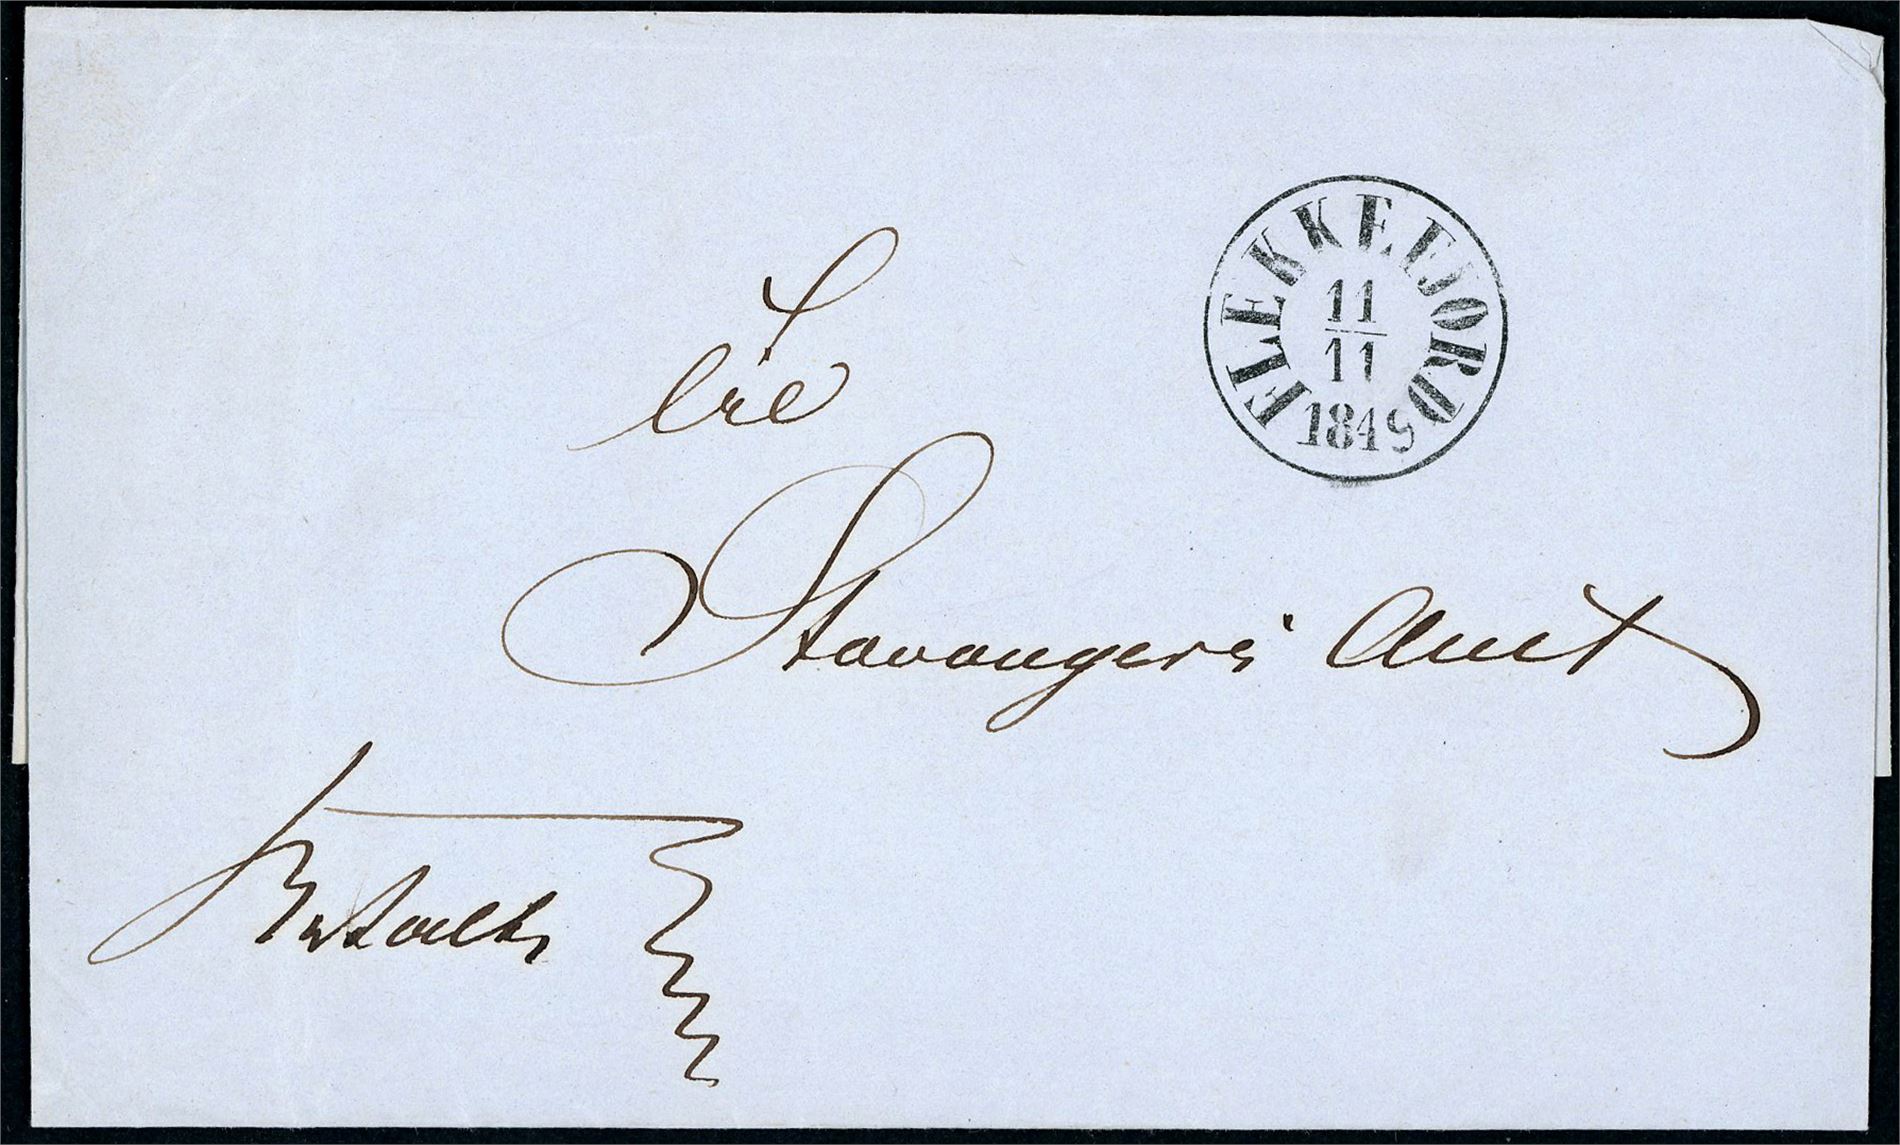 FLEKKEFJORD
11
11
1845
Til
Stavangers Amt
Betalt